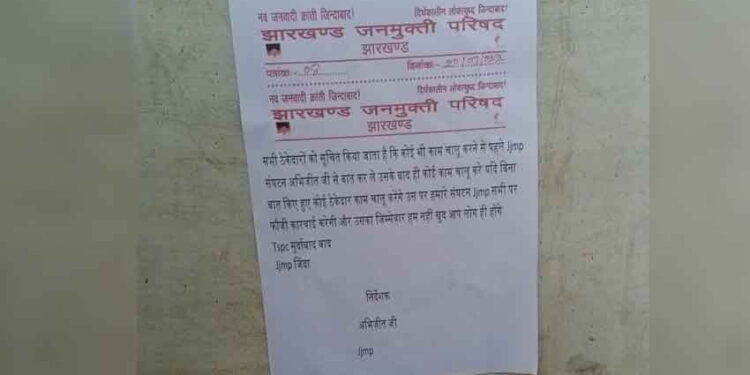 नव जनवादी क्रांती जिन्दाबाद! दिर्घकालीन लोकयुध्द जिन्दाबाद!
झारखण्ड जनमुक्ती परिषद
झारखण्ड
पत्रांक:- दिनांक:-
नव जनवादी क्रांती जिन्दाबाद! दिर्घकालीन लोकयुध्द जिन्दाबाद!
झारखण्ड जनमुक्ती परिषद
झारखण्ड
सभी ठेकेदारों को सूचित किया जाता है कि कोई भी काम चालू करने से पहले Jjmp
संघटन अभिजीत जी से बात कर ले उसके बाद ही कोई काम चालू करे यदि बिना
बात किए हुए कोई ठेकेदार काम चालू करेंगे उस पर हमारे संघटन Jjmp सभी पर
फौजी कारवाई करेगी और उसका जिम्मेवार हम नहीं खुद आप लोग ही होंगे
Tspc मूर्दाबाद बाद
Jjmp जिंदा
निर्देशक
अभिजीत जी
Jjmp